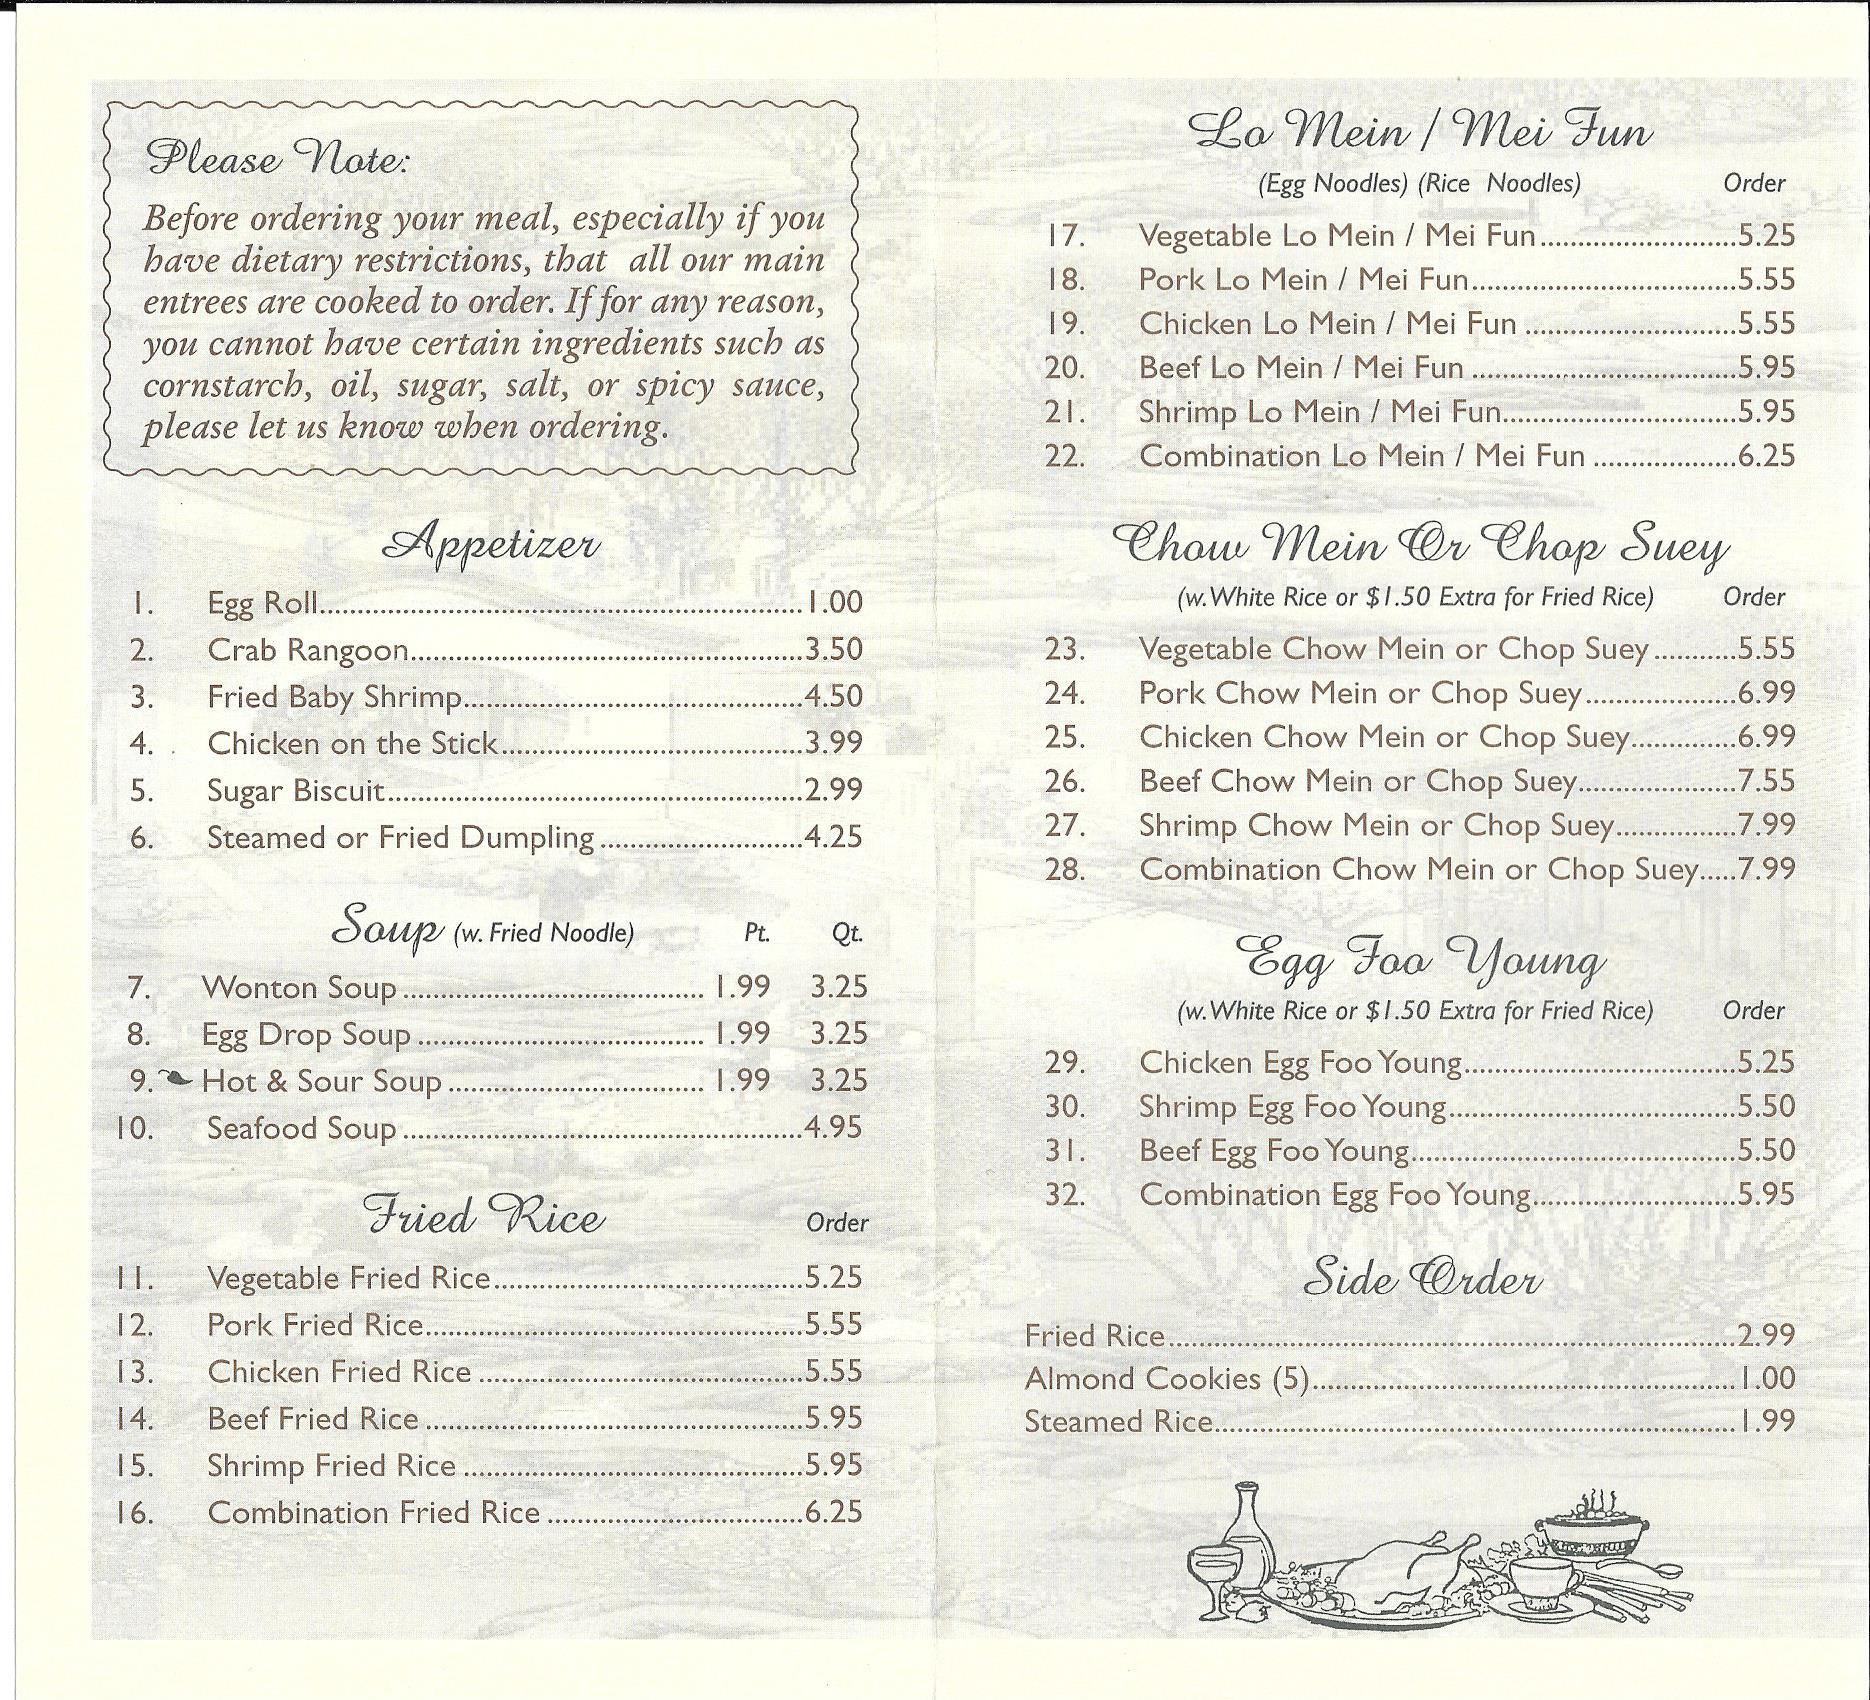 Please Note:
Before ordering your meal, especially if you
have dietary restrictions, that all our main
entrees are cooked to order. If for any reason,
you cannot have certain ingredients such as
cornstarch, oil, sugar, salt, or spicy sauce,
please let us know when ordering.
Appetizer
1. Egg Roll 1.00
2. Crab Rangoon 3.50
3. Fried Baby Shrimp 4.50
4. Chicken on the Stick 3.99
5. Sugar Biscuit 2.99
6. Steamed or Fried Dumpling 4.25
Soup (w. Fried Noodle) Pt. Qt.
7. Wonton Soup 1.99 3.25
8. Egg Drop Soup 1.99 3.25
9. Hot & Sour Soup 1.99 3.25
10. Seafood Soup 4.95
Fried Rice Order
11. Vegetable Fried Rice 5.25
12. Pork Fried Rice 5.55
13. Chicken Fried Rice 5.55
14. Beef Fried Rice 5.95
15. Shrimp Fried Rice 5.95
16. Combination Fried Rice 6.25
Lo Mein / Mei Fun
(Egg Noodles) (Rice Noodles) Order
17. Vegetable Lo Mein / Mei Fun 5.25
18. Pork Lo Mein / Mei Fun 5.55
19. Chicken Lo Mein / Mei Fun 5.55
20. Beef Lo Mein / Mei Fun 5.95
21. Shrimp Lo Mein / Mei Fun 5.95
22. Combination Lo Mein / Mei Fun 6.25
Chow Mein Or Chop Suey
(w. White Rice or $1.50 Extra for Fried Rice) Order
23. Vegetable Chow Mein or Chop Suey 5.55
24. Pork Chow Mein or Chop Suey 6.99
25. Chicken Chow Mein or Chop Suey 6.99
26. Beef Chow Mein or Chop Suey 7.55
27. Shrimp Chow Mein or Chop Suey 7.99
28. Combination Chow Mein or Chop Suey 7.99
Egg Foo Young
(w. White Rice or $1.50 Extra for Fried Rice) Order
29. Chicken Egg Foo Young 5.25
30. Shrimp Egg Foo Young 5.50
31. Beef Egg Foo Young 5.50
32. Combination Egg Foo Young 5.95
Side Order
Fried Rice 2.99
Almond Cookies (5) 1.00
Steamed Rice 1.99